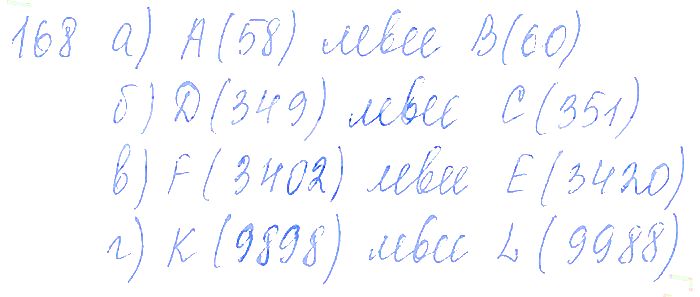 168 а) A(58) левее B(60)
б) D(349) левее C(351)
в) F(3402) левее E(3420)
г) K(9898) левее L(9988)